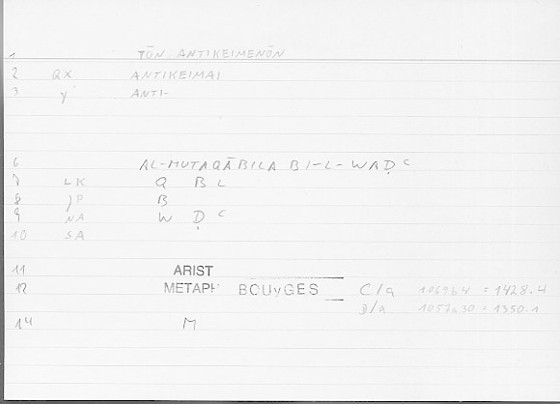 1 TŌN ANTIKEIMENŌN
2 QX ANTIKEIMAI
3 y ANTI-
6 AL-MUTAQĀBILA BI-L-WAḌᶜ
7 LK Q B L
8 JP B
9 NA W Ḍ ᶜ
10 SA
11 ARIST
12 METAPH BOUYGES C/a = 1428.4
D/a 1057a30 = 1350.1
14 M